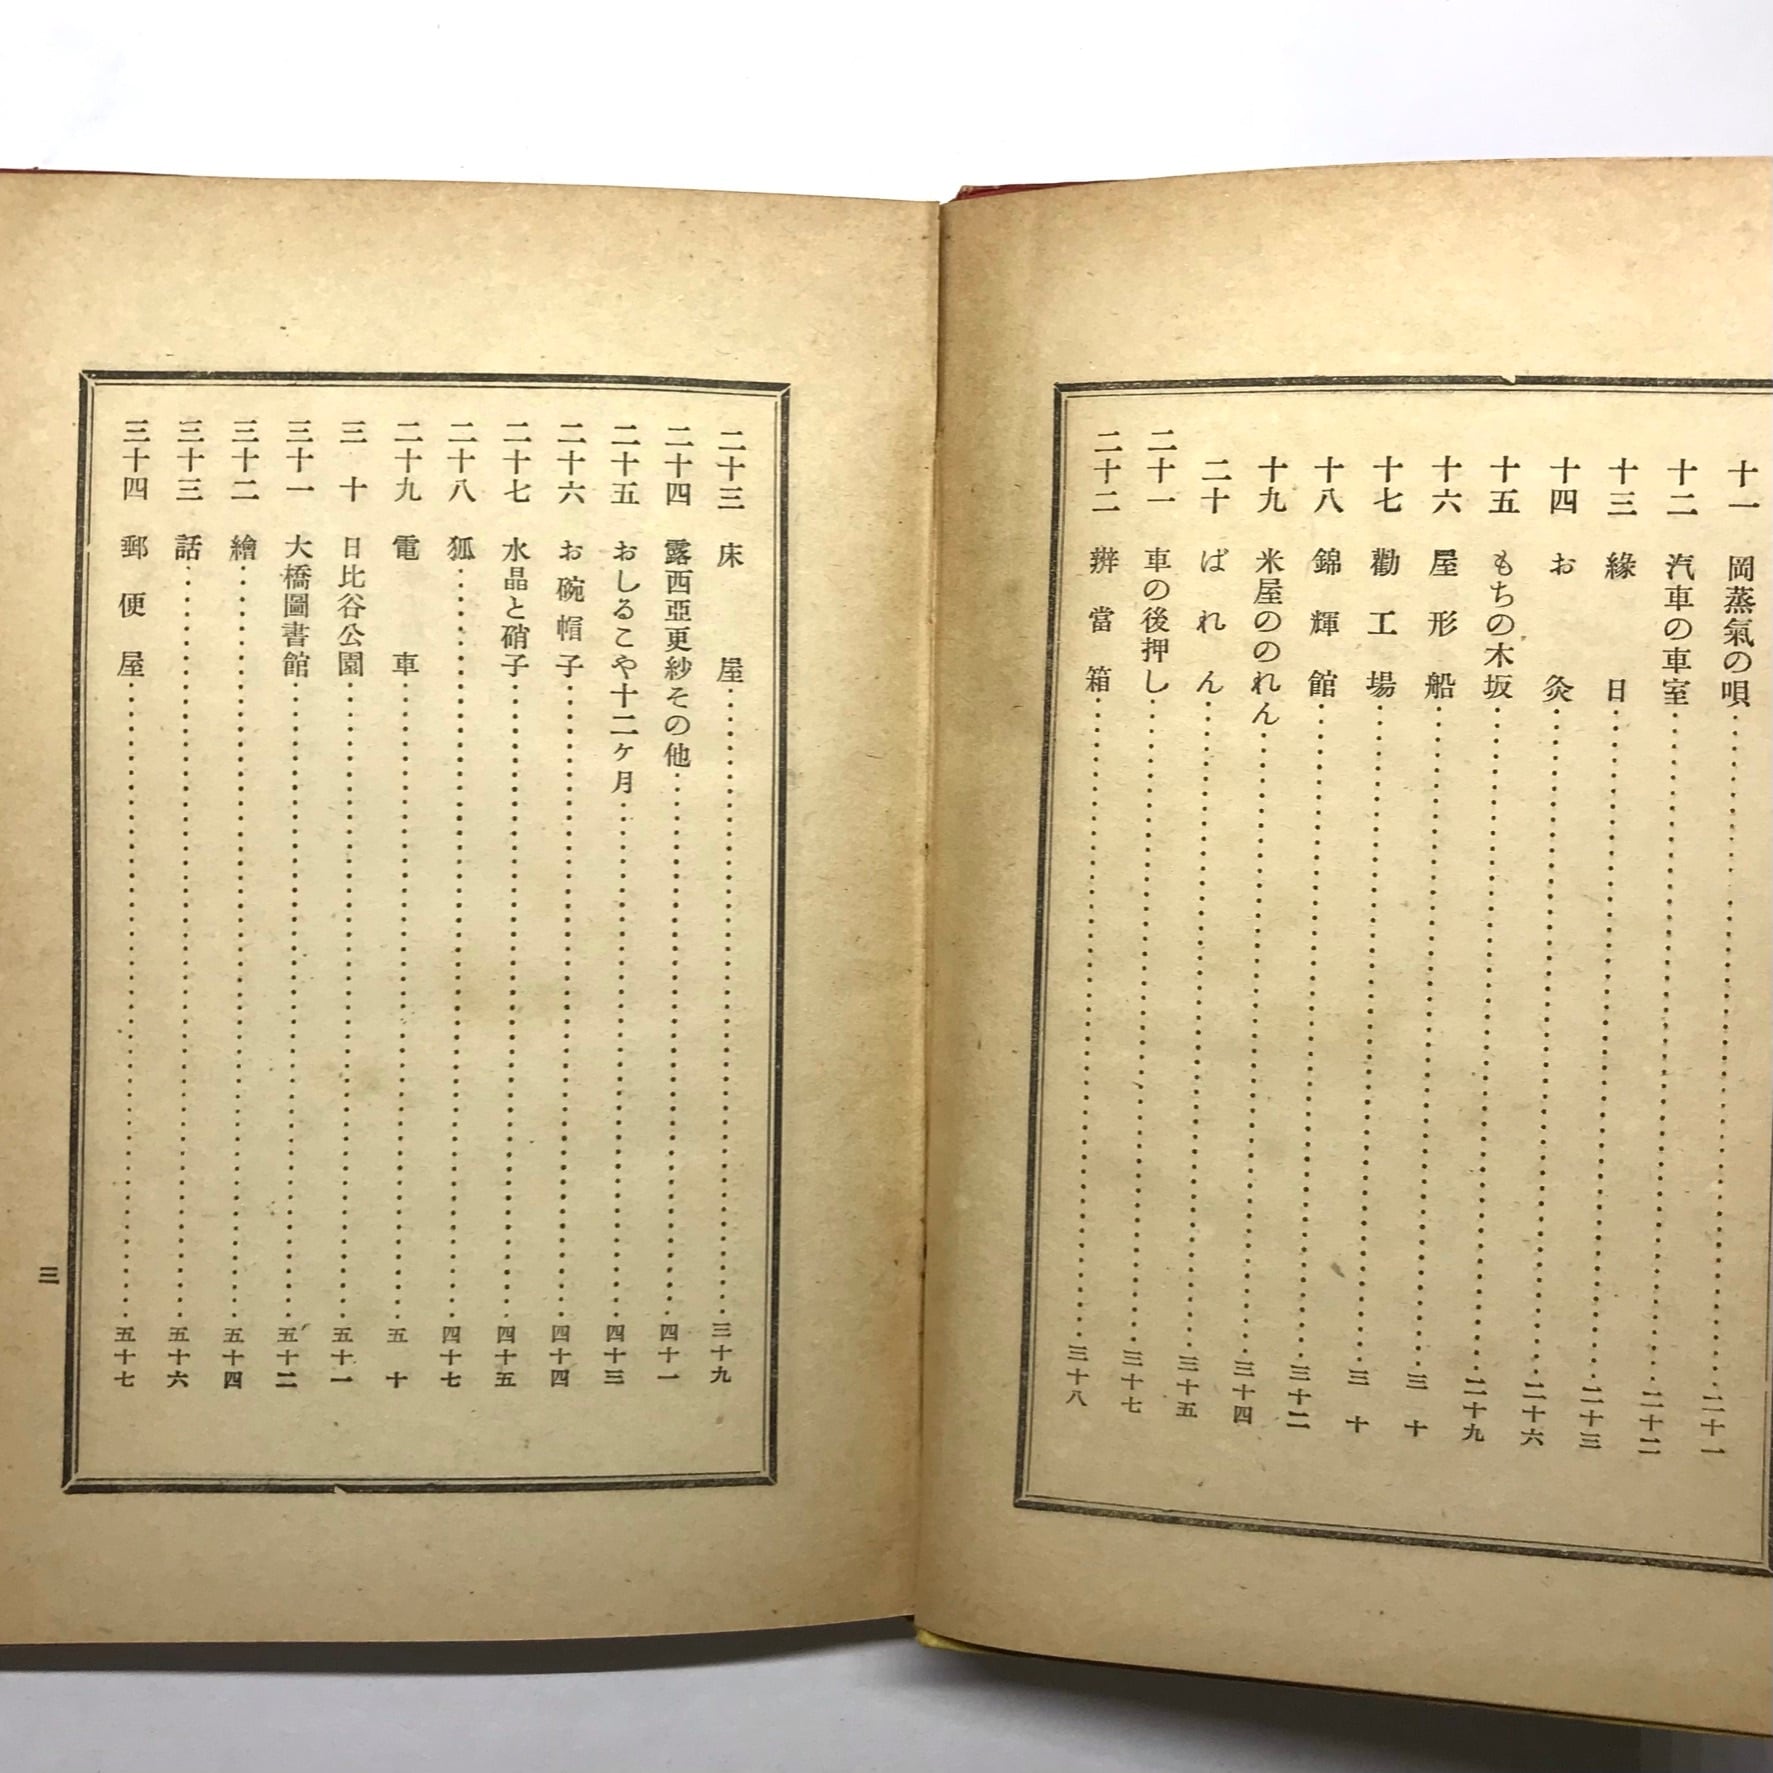 十一 岡蒸氣の唄 二十一
十二 汽車の車室 二十二
十三 緣日 二十三
十四 お灸 二十六
十五 もちの木坂 二十九
十六 屋形船 三十
十七 勸工場 三十
十八 錦輝館 三十二
十九 米屋ののれん 三十四
二十 ばれん 三十五
二十一 車の後押し 三十七
二十二 辨當箱 三十八
二十三 床屋 三十九
二十四 露西亞更紗その他 四十一
二十五 おしるこや十二ケ月 四十三
二十六 お碗帽子 四十四
二十七 水晶と硝子 四十五
二十八 狐 四十七
二十九 電車 五十
三十 日比谷公園 五十一
三十一 大橋圖書館 五十二
三十二 繪 五十四
三十三 話 五十六
三十四 郵便屋 五十七
三